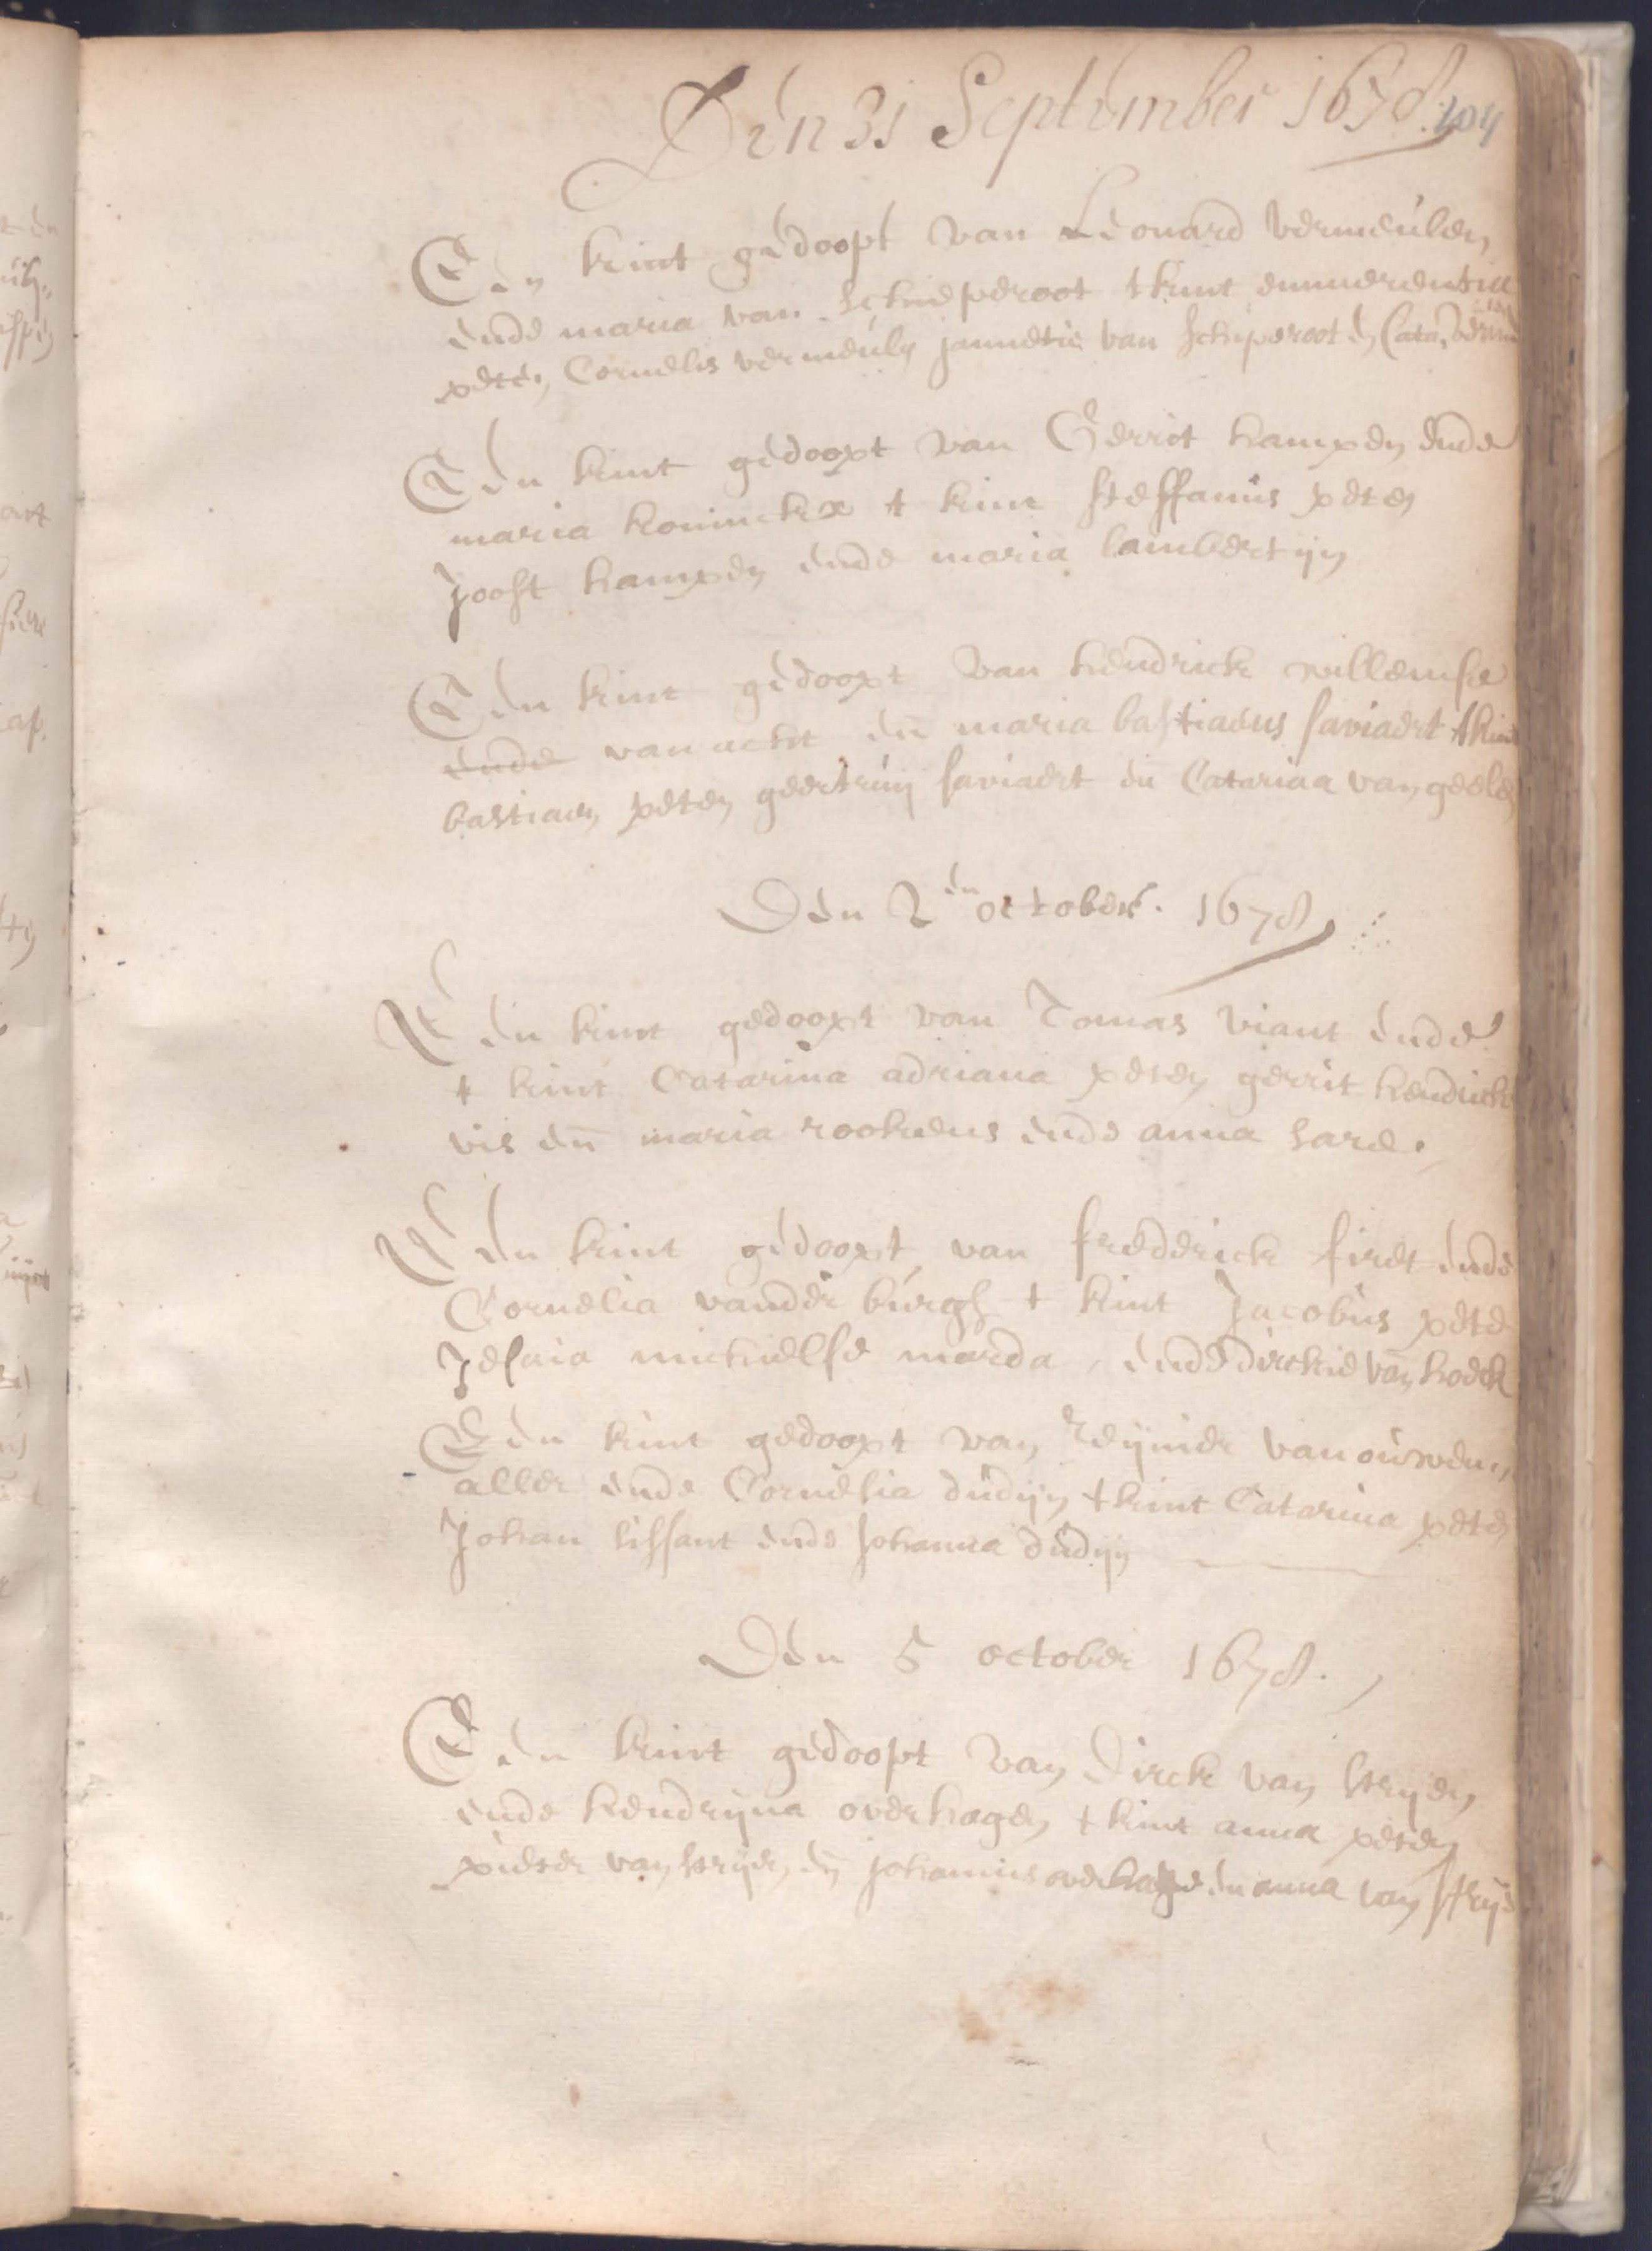 Den 31 September 1678. 104
Een kint gedoopt van Leonard vermeulen
ende maria van schieperoot t kint emmerentia
peten Cornelis vermeulen jannetie van schiperoot en Cata.
Een kint gedoopt van Gerrit kampen ende
maria koninckx t kint steffanus peten
Joost kampen ende maria lambertijn
Een kint gedoopt van hendrick willemse
ende van acht en maria bastiaens saviaert t kint
bastiaen peten geertruij saviaert en Catarina van geelen
Den 2en october. 1678
Een kint gedoopt van Tomas viant ende
t kint Catarina adriana peten gerrit hendrick
vis en maria rookens ende anna hare.
Een kint gedoopt van fredderick firet ende
Cornelia vander burgh t kint Jacobus pete
Jesaia michielse ende dirckie van hoeck
Een kint gedoopt van Reijnier van ouwen,,
aller ende Cornelia dudijn t kint Catarina peten
Johan lissant ende Johanna dudijn
Den 5 october 1678.
Een kint gedoopt van Dirck van strijen
ende hendrijna overhagen t kint anna peten
pieter van strijen en johannis overhage en anna van strije